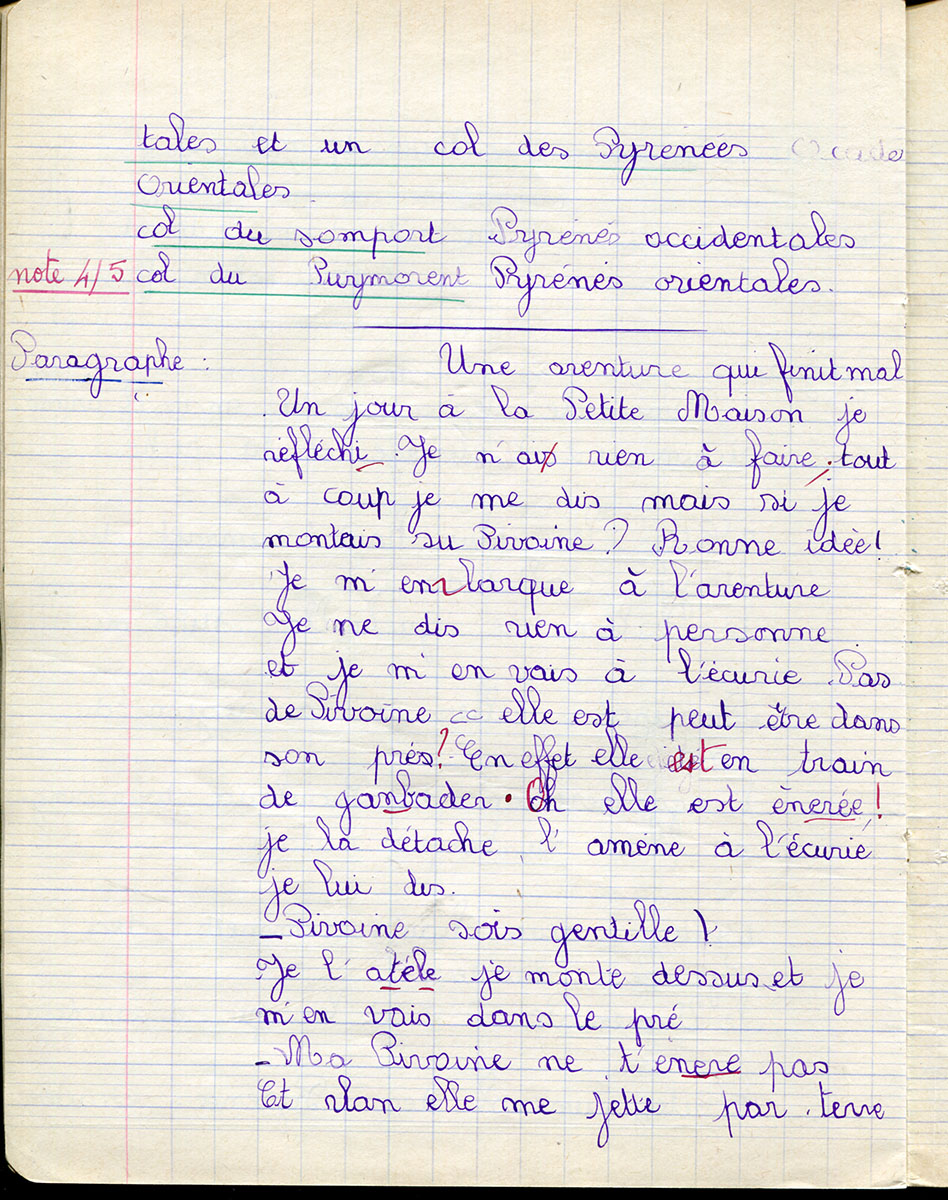 tales et un col des Pyrenées
Orientales
col du somport Pyrénés occidentales
note 4/5 col du Puymorent Pyrénés orientales.
Paragraphe : Une aventure qui finit mal
Un jour à la Petite Maison je
réfléchi. Je n'ais rien à faire. tout
à coup je me dis mais si je
montais su Pivoine ? Bonne idée!
Je m'enbarque à l'aventure
Je ne dis rien à personne
et je m'en vais à l'écurie. Pas
de Pivoine << elle est peut être dans
son prés! En effet elle est en train
de ganbader. Oh elle est énerée!
je la détache, l'amène à l'écurie,
je lui dis.
- Pivoine sois gentille !
Je l'atéle je monte dessus et je
m'en vais dans le pré
- Ma Pivoine ne t'énere pas
Et vlan elle me jette par terre